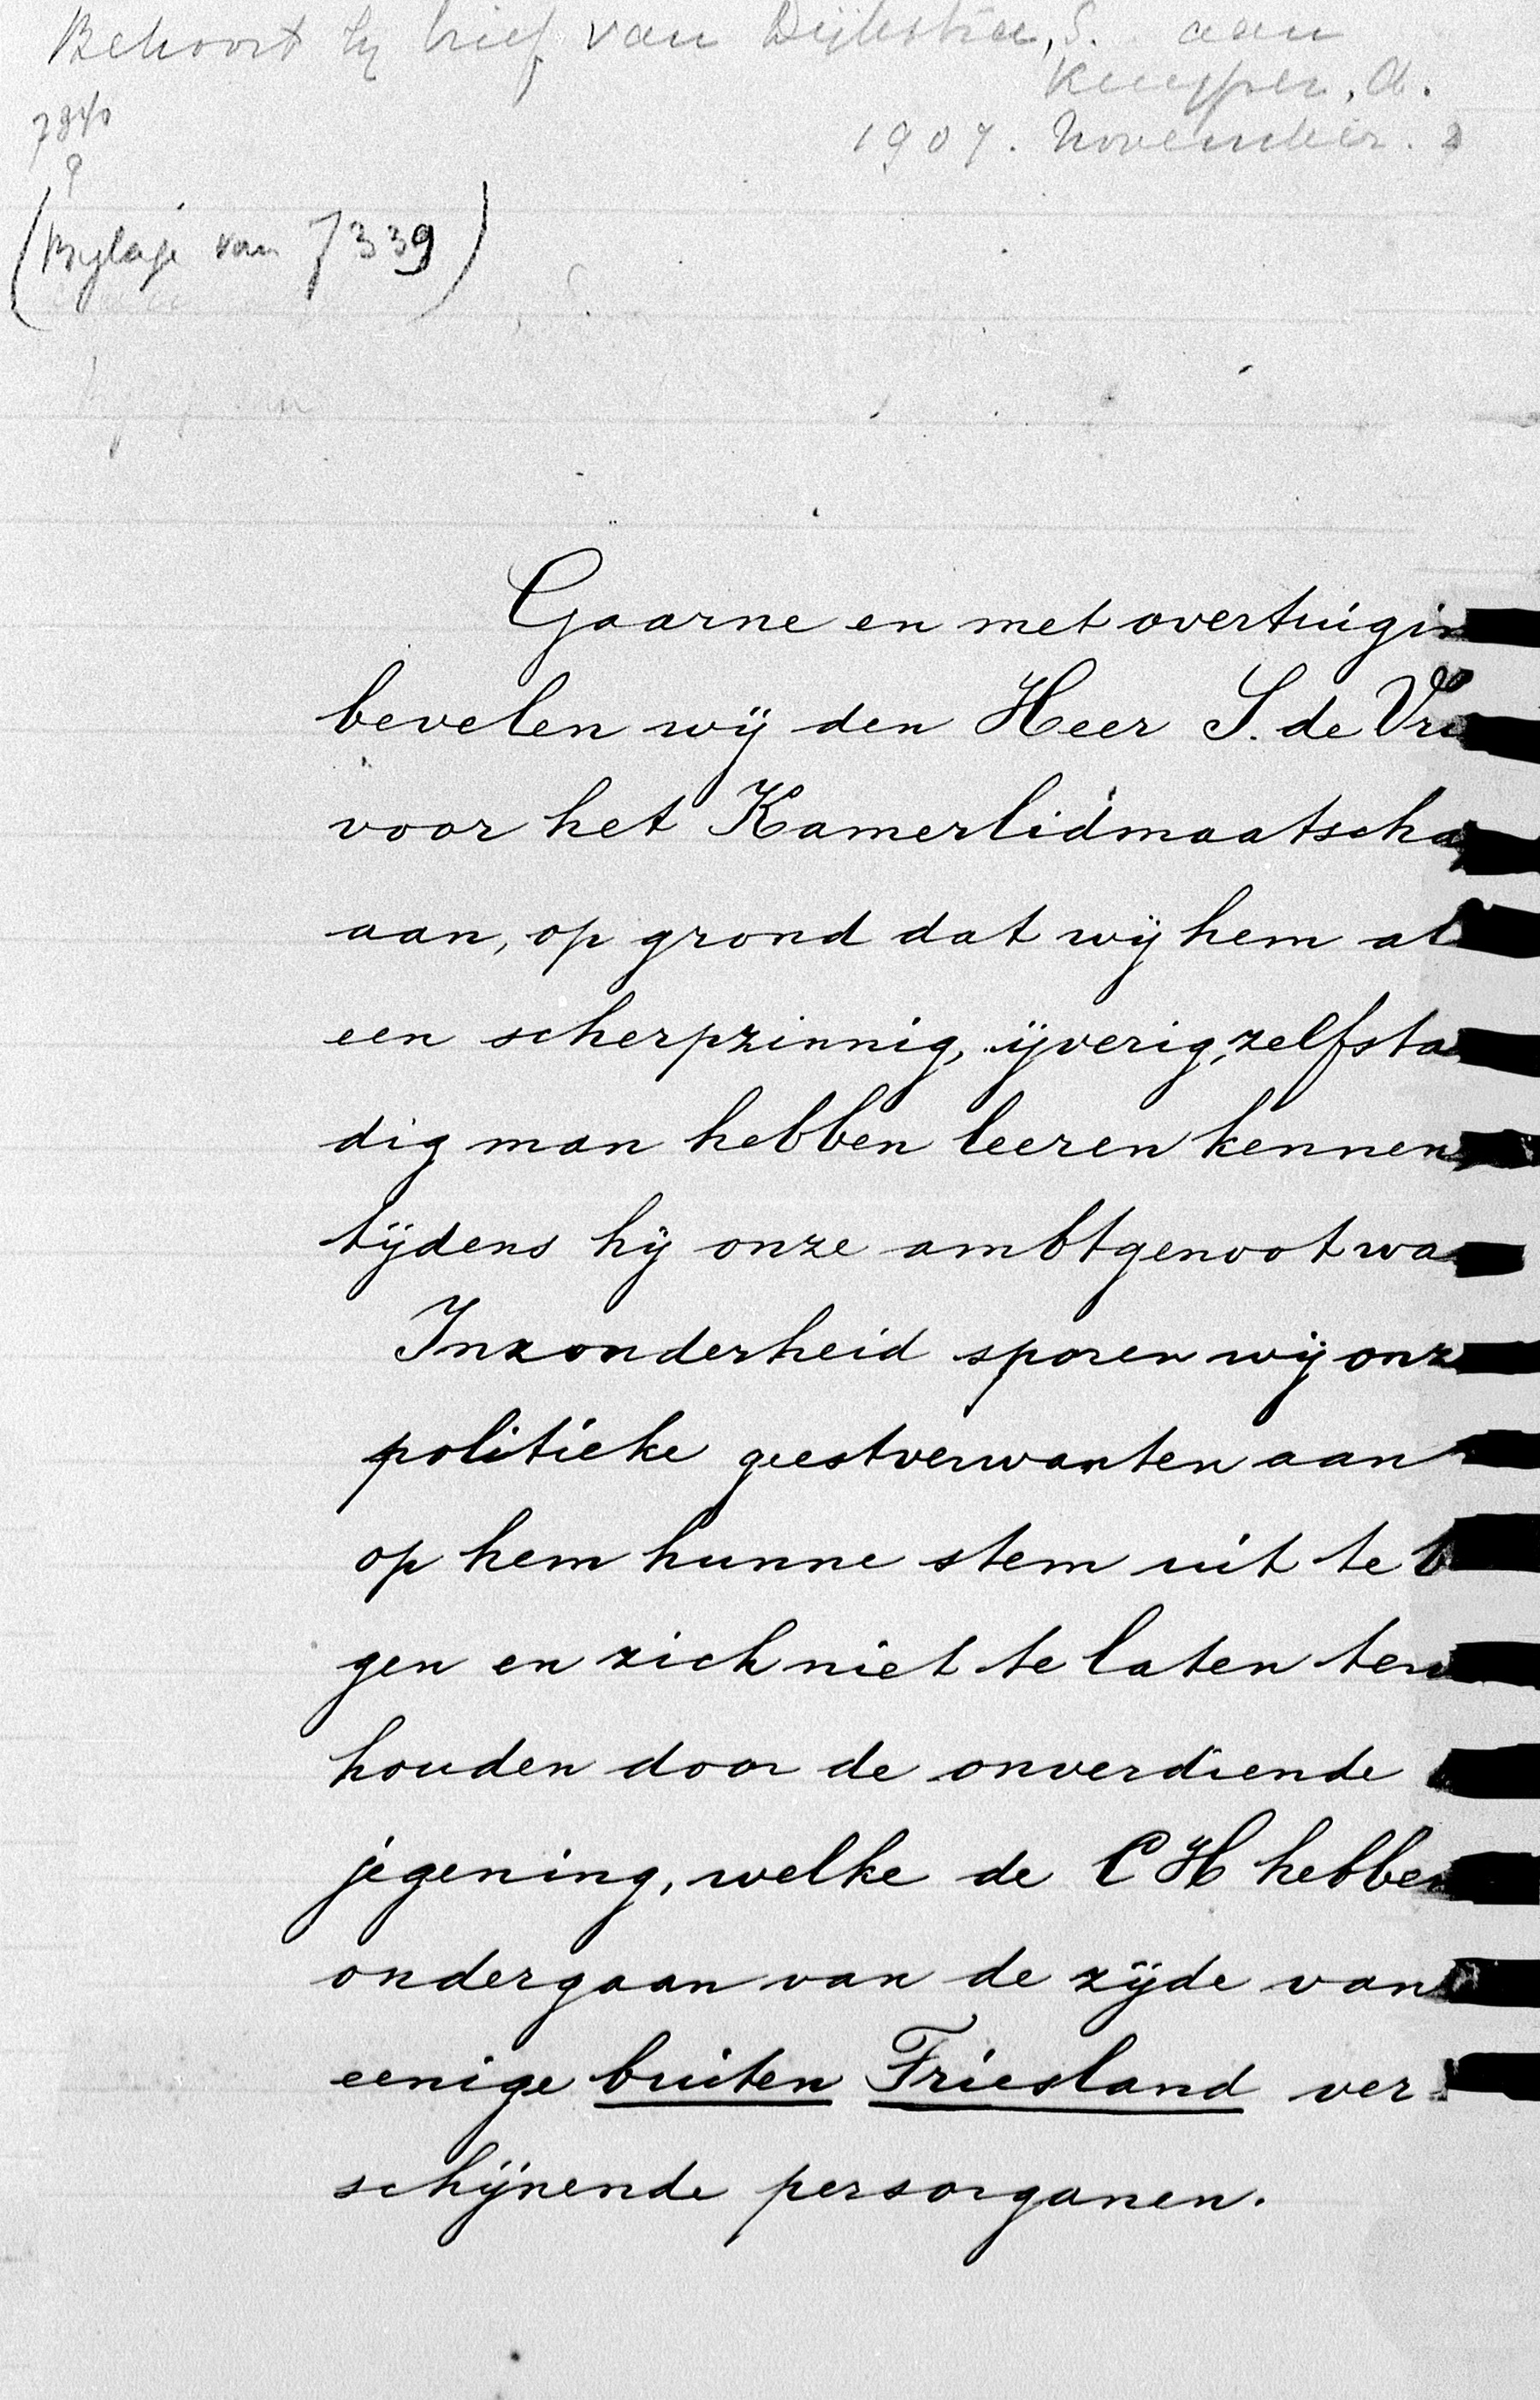 Behoort bij brief van Dijkstra, S. aan
Kuyper, A.
1907. November.
7340
(Bylage van 7339)
Gaarne en met overtuigin
bevelen wij den Heer S. de Vri
voor het Kamerlidmaatscha
aan, op grond dat wij hem al
een scherpzinnig, ijverig, zelfsta
dig man hebben leeren kennen
tijdens hij onze ambtgenoot wa
Inzonderheid sporen wij onz
politieke geestverwanten aan
op hem hunne stem uit te b
gen en zich niet te laten teru
houden door de onverdiende
jegening, welke de CH hebben
ondergaan van de zijde van
eenige buiten Friesland ver
schijnende persorganen.